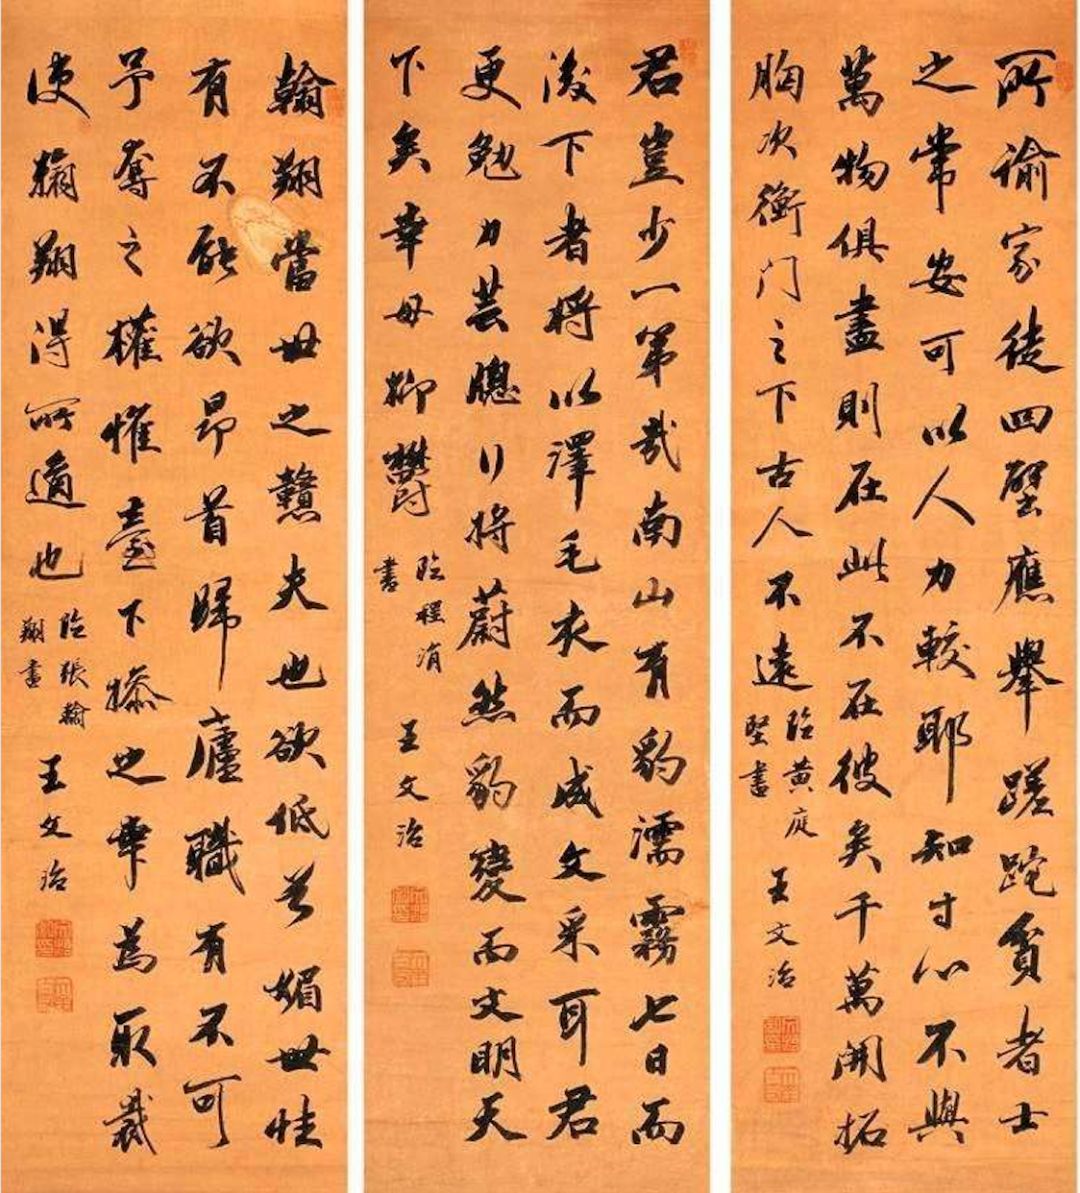 所谕家徒四壁應舉蹉跎貧者士
之常安可以人力較耶知寸心不與
萬物俱盡則在此不在彼矣千萬開拓
胸次衡门之下古人不遠
臨黄庭
堅書
王文治
君豈少一第哉南山有豹濡霧七日而
下者將以澤毛衣而成文采耳君
更勉力芸牕行將蔚然豹變而文明天
下矣幸毋抑欝
臨程涓
書
王文治
翰翔當世之戇夫也欲低媚世性
有不能欲昂首歸廬職有不可
予奪之權惟臺下操之幸為取裁
使翰翔得所適也
臨張翰
翔書
王文治